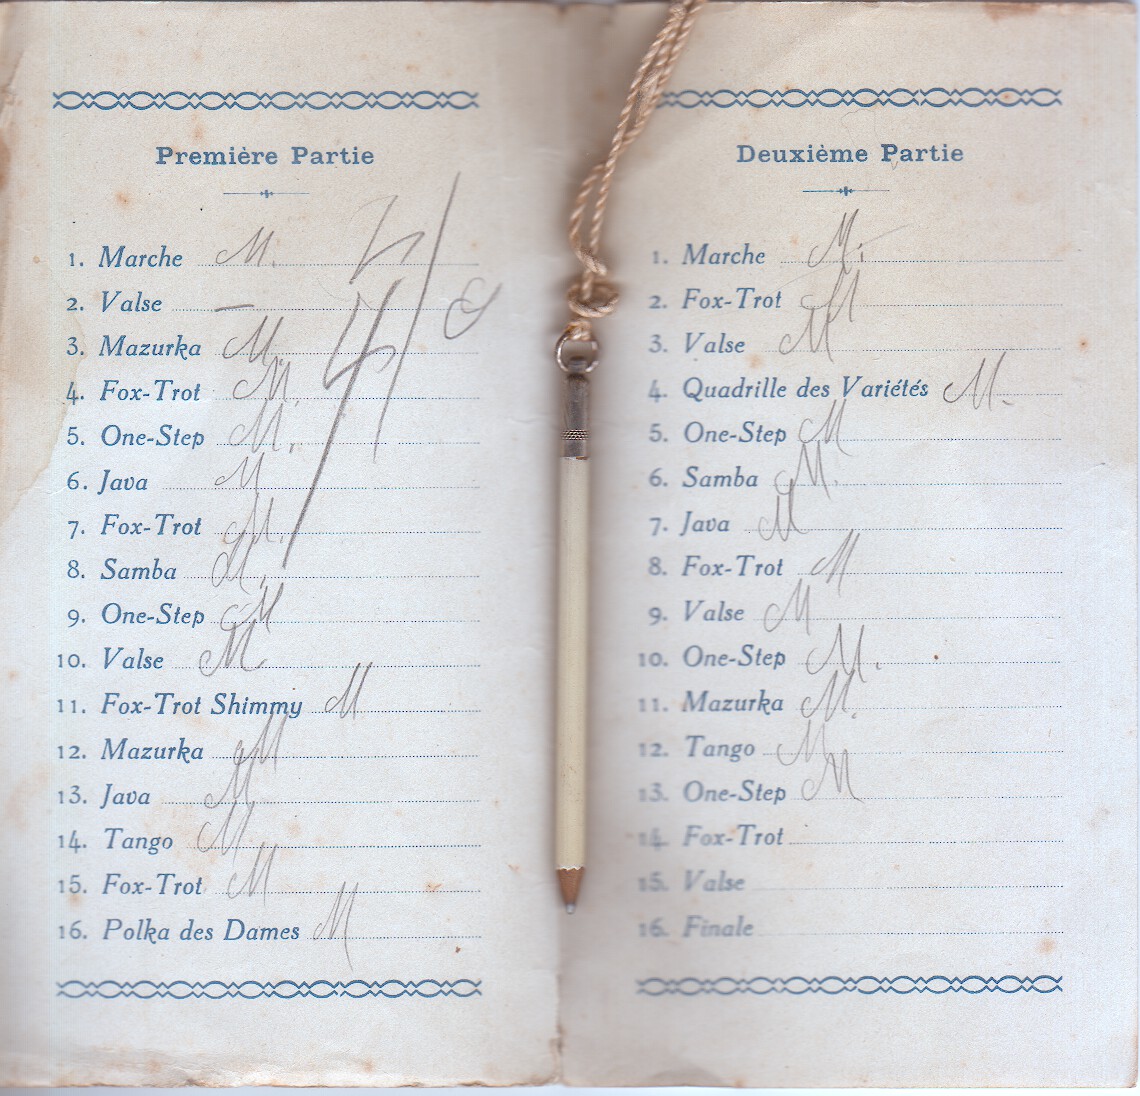 Première Partie
1. Marche M.
2. Valse —
3. Mazurka M.
4. Fox-Trot M.
5. One-Step M.
6. Java M
7. Fox-Trot M.
8. Samba M.
9. One-Step M
10. Valse M
11. Fox-Trot Shimmy M
12. Mazurka M
13. Java M
14. Tango M
15. Fox-Trot M
16. Polka des Dames M
Deuxième Partie
1. Marche M.
2. Fox-Trot M
3. Valse M
4. Quadrille des Variétés M.
5. One-Step M
6. Samba M.
7. Java M
8. Fox-Trot M
9. Valse M
10. One-Step M.
11. Mazurka M.
12. Tango M
13. One-Step M
14. Fox-Trot
15. Valse
16. Finale